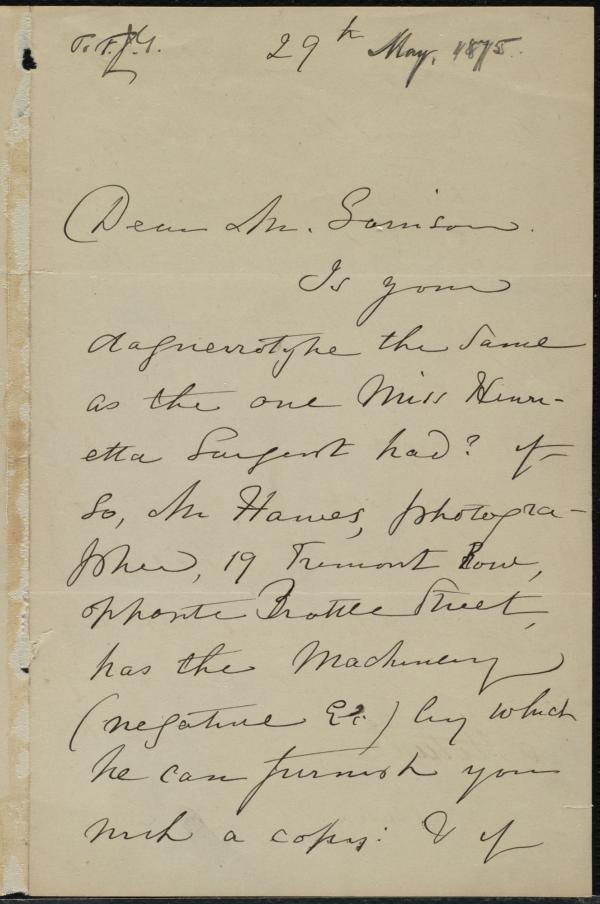 29th May, 1875.
Dear Mr. Garrison.
Is your
daguerrotype the same
as the one Miss Henri-
etta Sargent had? if
So, Mr Hawes, photogra-
pher, 19 Tremont Row,
opposite Brattle Street,
has the Machinery
(negative &c) by which
he can furnish you
such a copy: & if